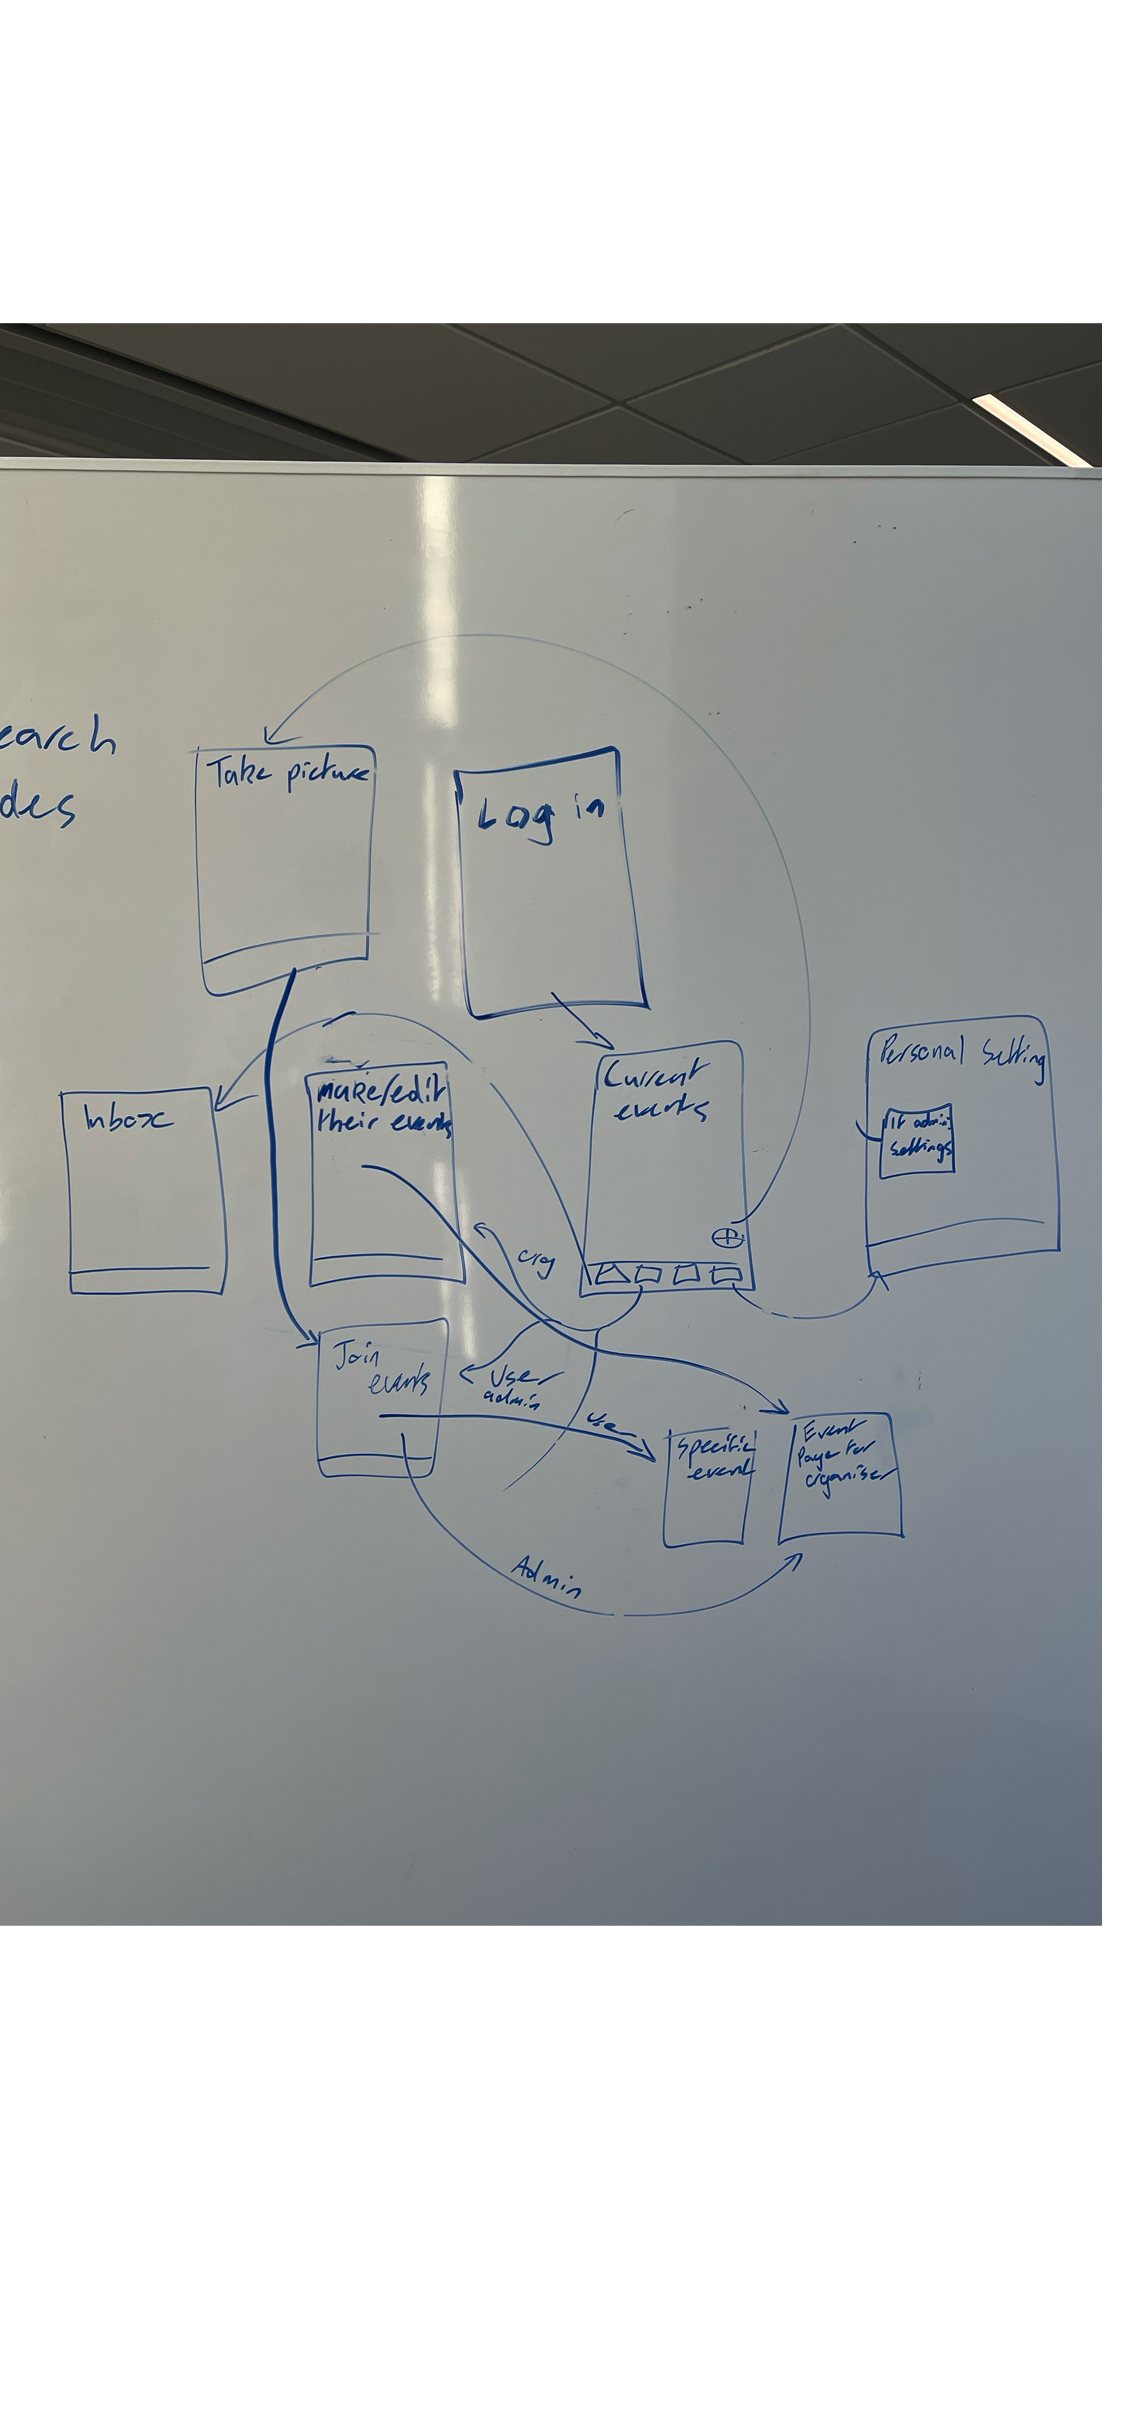 earch
des
Take picture
Log in
Inbox
make/edit
their events
Current
events
Personal Setting
If admin
settings
org
Join
events
User
admin
User
Specific
event
Event
Page for
organiser
Admin